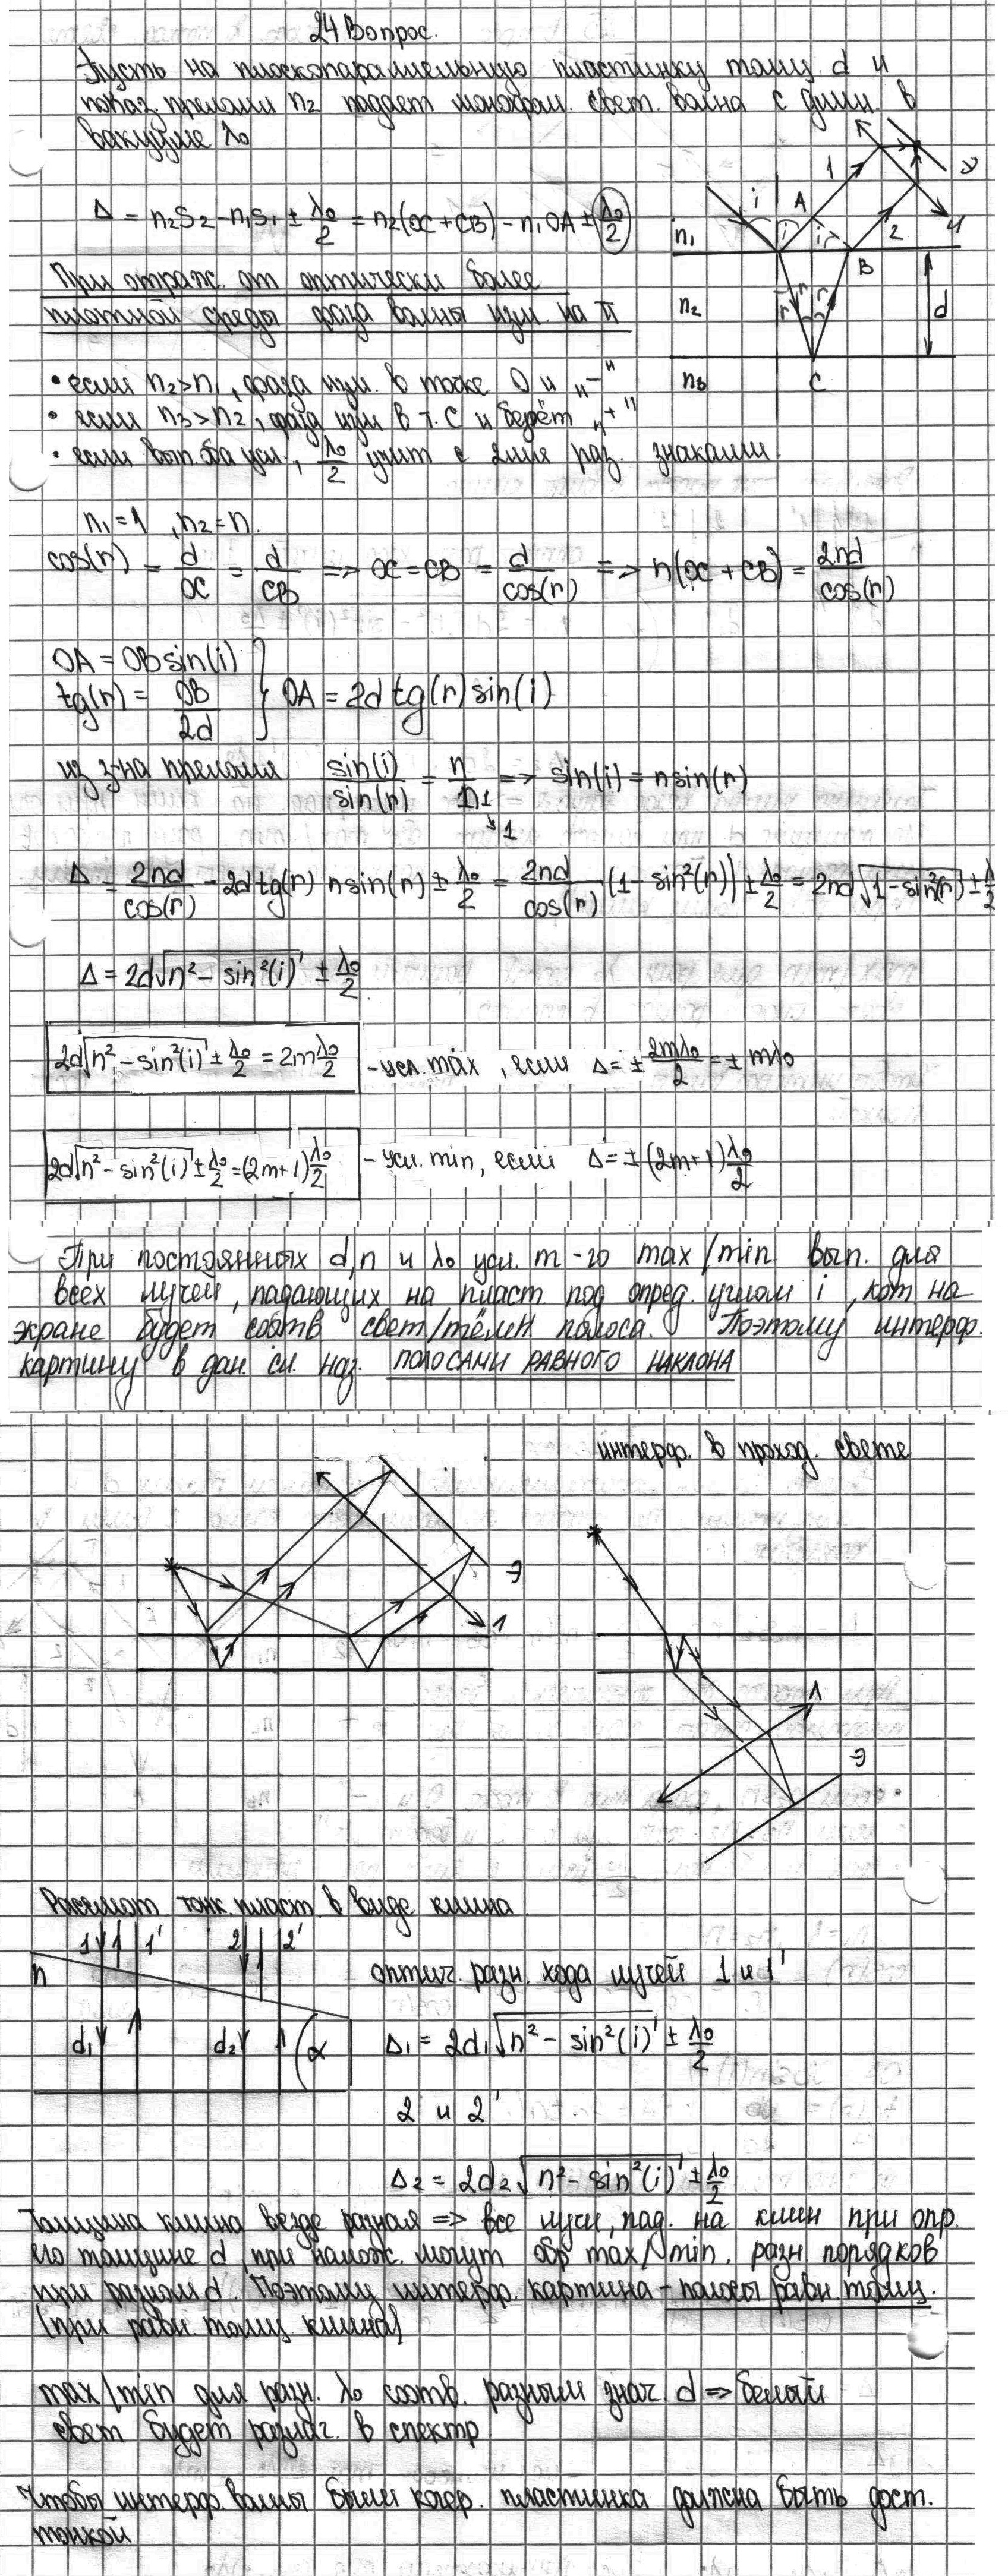 24 Вопрос.
Пусть на плоскопараллельную пластинку толщ. d и
показ. преломл n₂ падает монохром. свет. волна с длин. в
вакууме λ₀
Δ = n₂S₂ - n₁S₁ ± λ₀/2 = n₂(OC + CB) - n₁OA ± λ₀/2
При отраж. от оптически более
плотной среды фаза волны изм. на π
• если n₂>n₁, фаза изм. в точке O и „-"
• если n₃>n₂, фаза изм в т. C и берёт „+"
• если вып. оба усл., λ₀/2 учит с 2мя раз. знаками.
i A 1 Э
i i 2 Л
n₁ B
n₂ r r r d
n₃ C
n₁=1, n₂=n.
cos(r) = d/OC = d/CB => OC = CB = d/cos(r) => n(OC + CB) = 2nd/cos(r)
OA = OB sin(i)
tg(r) = OB/2d } OA = 2d tg(r) sin(i)
из з-на преломл sin(i)/sin(r) = n/n₁ => sin(i) = n sin(r)
↘1
Δ = 2nd/cos(r) - 2d tg(r) n sin(r) ± λ₀/2 = 2nd/cos(r) (1 - sin²(r)) ± λ₀/2 = 2nd√(1 - sin²(r)) ± λ/2
Δ = 2d√(n² - sin²(i)) ± λ₀/2
2d√(n² - sin²(i)) ± λ₀/2 = 2m λ₀/2 - усл. max, если Δ = ± 2mλ₀/2 = ± mλ₀
2d√(n² - sin²(i)) ± λ₀/2 = (2m+1) λ₀/2 - усл. min, если Δ = ± (2m+1) λ₀/2
При постоянных d, n и λ₀ усл. m-го max/min вып. для
всех лучей, падающих на пласт под опред. углом i, кот на
экране будет соотв свет/тёмн полоса. Поэтому интерф.
картину в дан. сл. наз. ПОЛОСАМИ РАВНОГО НАКЛОНА
интерф. в проход. свете
Э
Л
Л
Э
Рассмот. тонк. пласт. в виде клина
1 1' 2 2'
n
d₁ d₂ α
оптич. разн. хода лучей 1 и 1'
Δ₁ = 2d₁√(n² - sin²(i)) ± λ₀/2
2 и 2'
Δ₂ = 2d₂√(n² - sin²(i)) ± λ₀/2
Толщина клина везде разная => все лучи, пад. на клин при опр.
его толщине d, при налож. могут обр max/min. разн порядков
при разном d. Поэтому интерф. картина - полосы равн. толщ.
(при равн. толщ. клина)
max/min для разн. λ₀ соотв. разным знач. d => белый
свет будет разлаг. в спектр
Чтобы интерф. волны были когер. пластинка должна быть дост.
тонкой